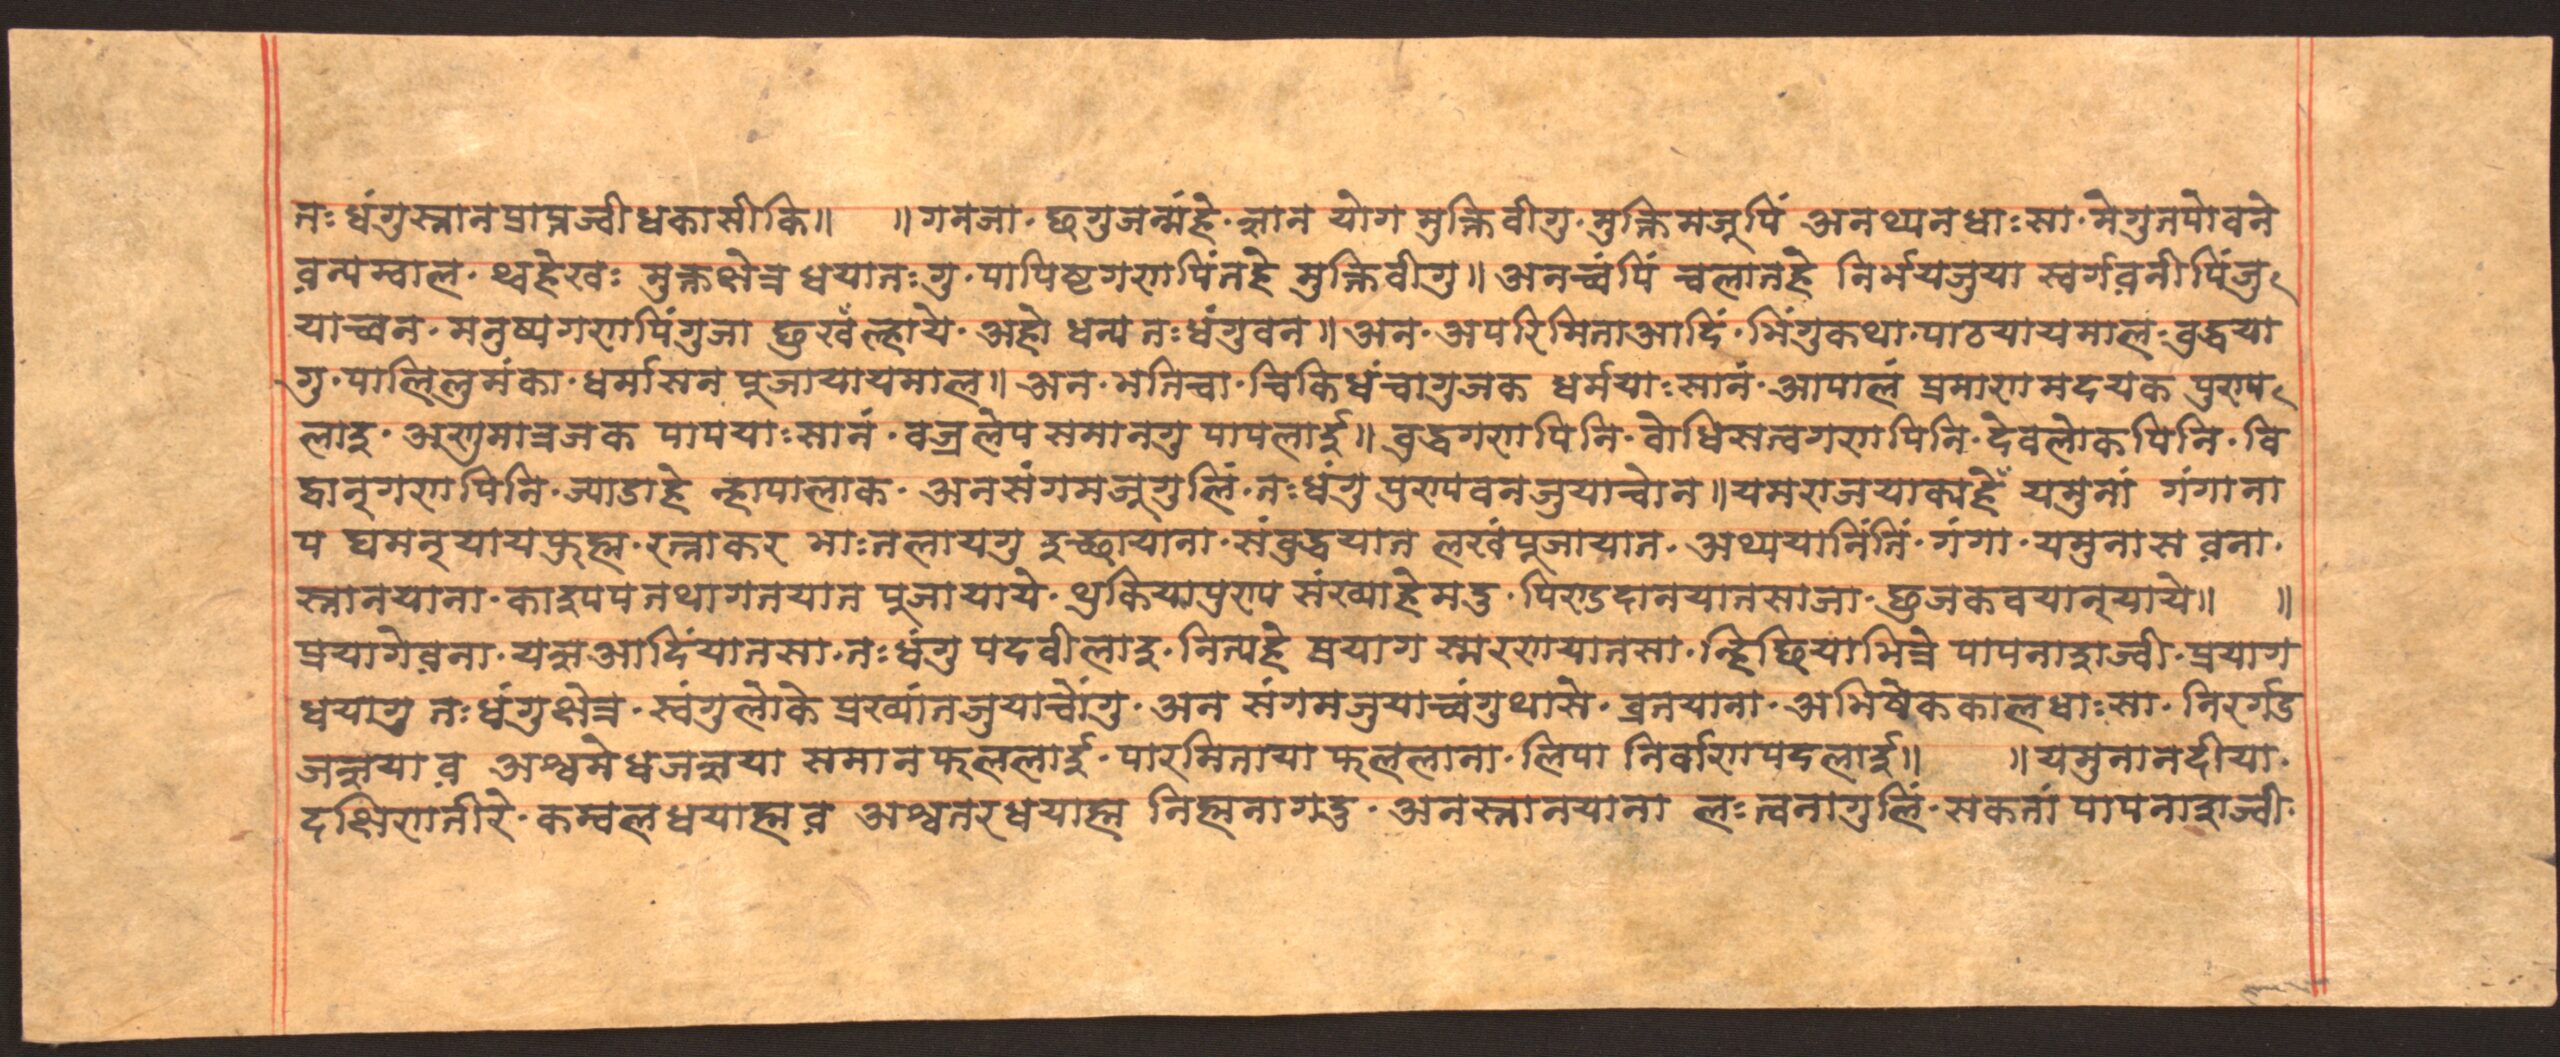 तः धंगु स्नान प्राप्त ज्वी धका सीकि॥ ॥ गनजा· छगु जन्मंहे· ज्ञान योग मुक्तिवीगु· मुक्ति मजूपिं अनथ्यन धाः सा· मेगु तपोवने
व़न्य म्वाल· थ्वहे खः मुक्तक्षेत्र धयातःगु· पापिष्टगणपिंतहे मुक्तिवीगु॥ अनच्वंपिं च्वलातहे निर्भय जुया स्वर्ग व़नीपिं जु
या च्वन· मनुष्यगणपिंगुजा छु खँल्हाये· अहो धन्य तः धंगु वन॥ अन· अपरिमिता आदिं· भिंगुकथा· पाठ यायमाल· बुद्धया
गु· पालि लुमंका· धर्मासन पूजा यायमाल॥ अन· भतिचा· चिकिधंचागु जक धर्म याः सानं· आपालं प्रमाण मदयक पुण्य
लाइ· अणुमात्र जक पाप याः सानं· वज्रलेप समानगु पाप लाई॥ बुद्धगणपिनि· बोधिसत्वगणपिनि· देवलोकपिनि· वि
द्वान्‌गणपिनि· ज्याडाहे न्ह्यपालाक· अन संगम जूगुलिं· तः धंगु पुण्य वन जुया चोन॥ यमराजया काय्‌हें यमुनां गंगा नां
प घमनृ यायफुह्म· रत्नाकर भाः तलायगु इच्छा याना· संबुद्धयात लखं पूजा यात· अथ्य यानिंतिं· गंगा· यमुनास व़ना·
स्नान याना· काडुपप तथागतयात पूजा याये· थुकिया पुण्य संख्याहे मदु· पिण्डदान यातसा जा· छु जक वयान्‌ याये॥ ॥
प्रयागे व़ना· यज्ञ आदिं यातसा· तः धंगु पदवी लाइ· नित्यहे प्रयाग स्मरण यातसा· न्हिछिया भित्रे पाप नाश ज्वी· प्रयाग
धयागु तः धंगु क्षेत्र· स्वंगु लोके प्रख्यात जुया चोंगु· अन संगम जुया च्वंगु थासे· व्रत याना· अभिषेक काल धाः सा· निरर्गड
जज्ञया व़ अश्वमेध जज्ञया समान फल लाई· पारमिताया फल लाना· लिपा निर्वाण पद लाई॥ ॥ यमुना नदीया·
दक्षिण तीरे· कम्बल धयाह्म व़ अश्वतर धयाह्म निह्म नाग दु· अन स्नान याना लः त्वनागुलिं· सकतां पाप नाश ज्वी·